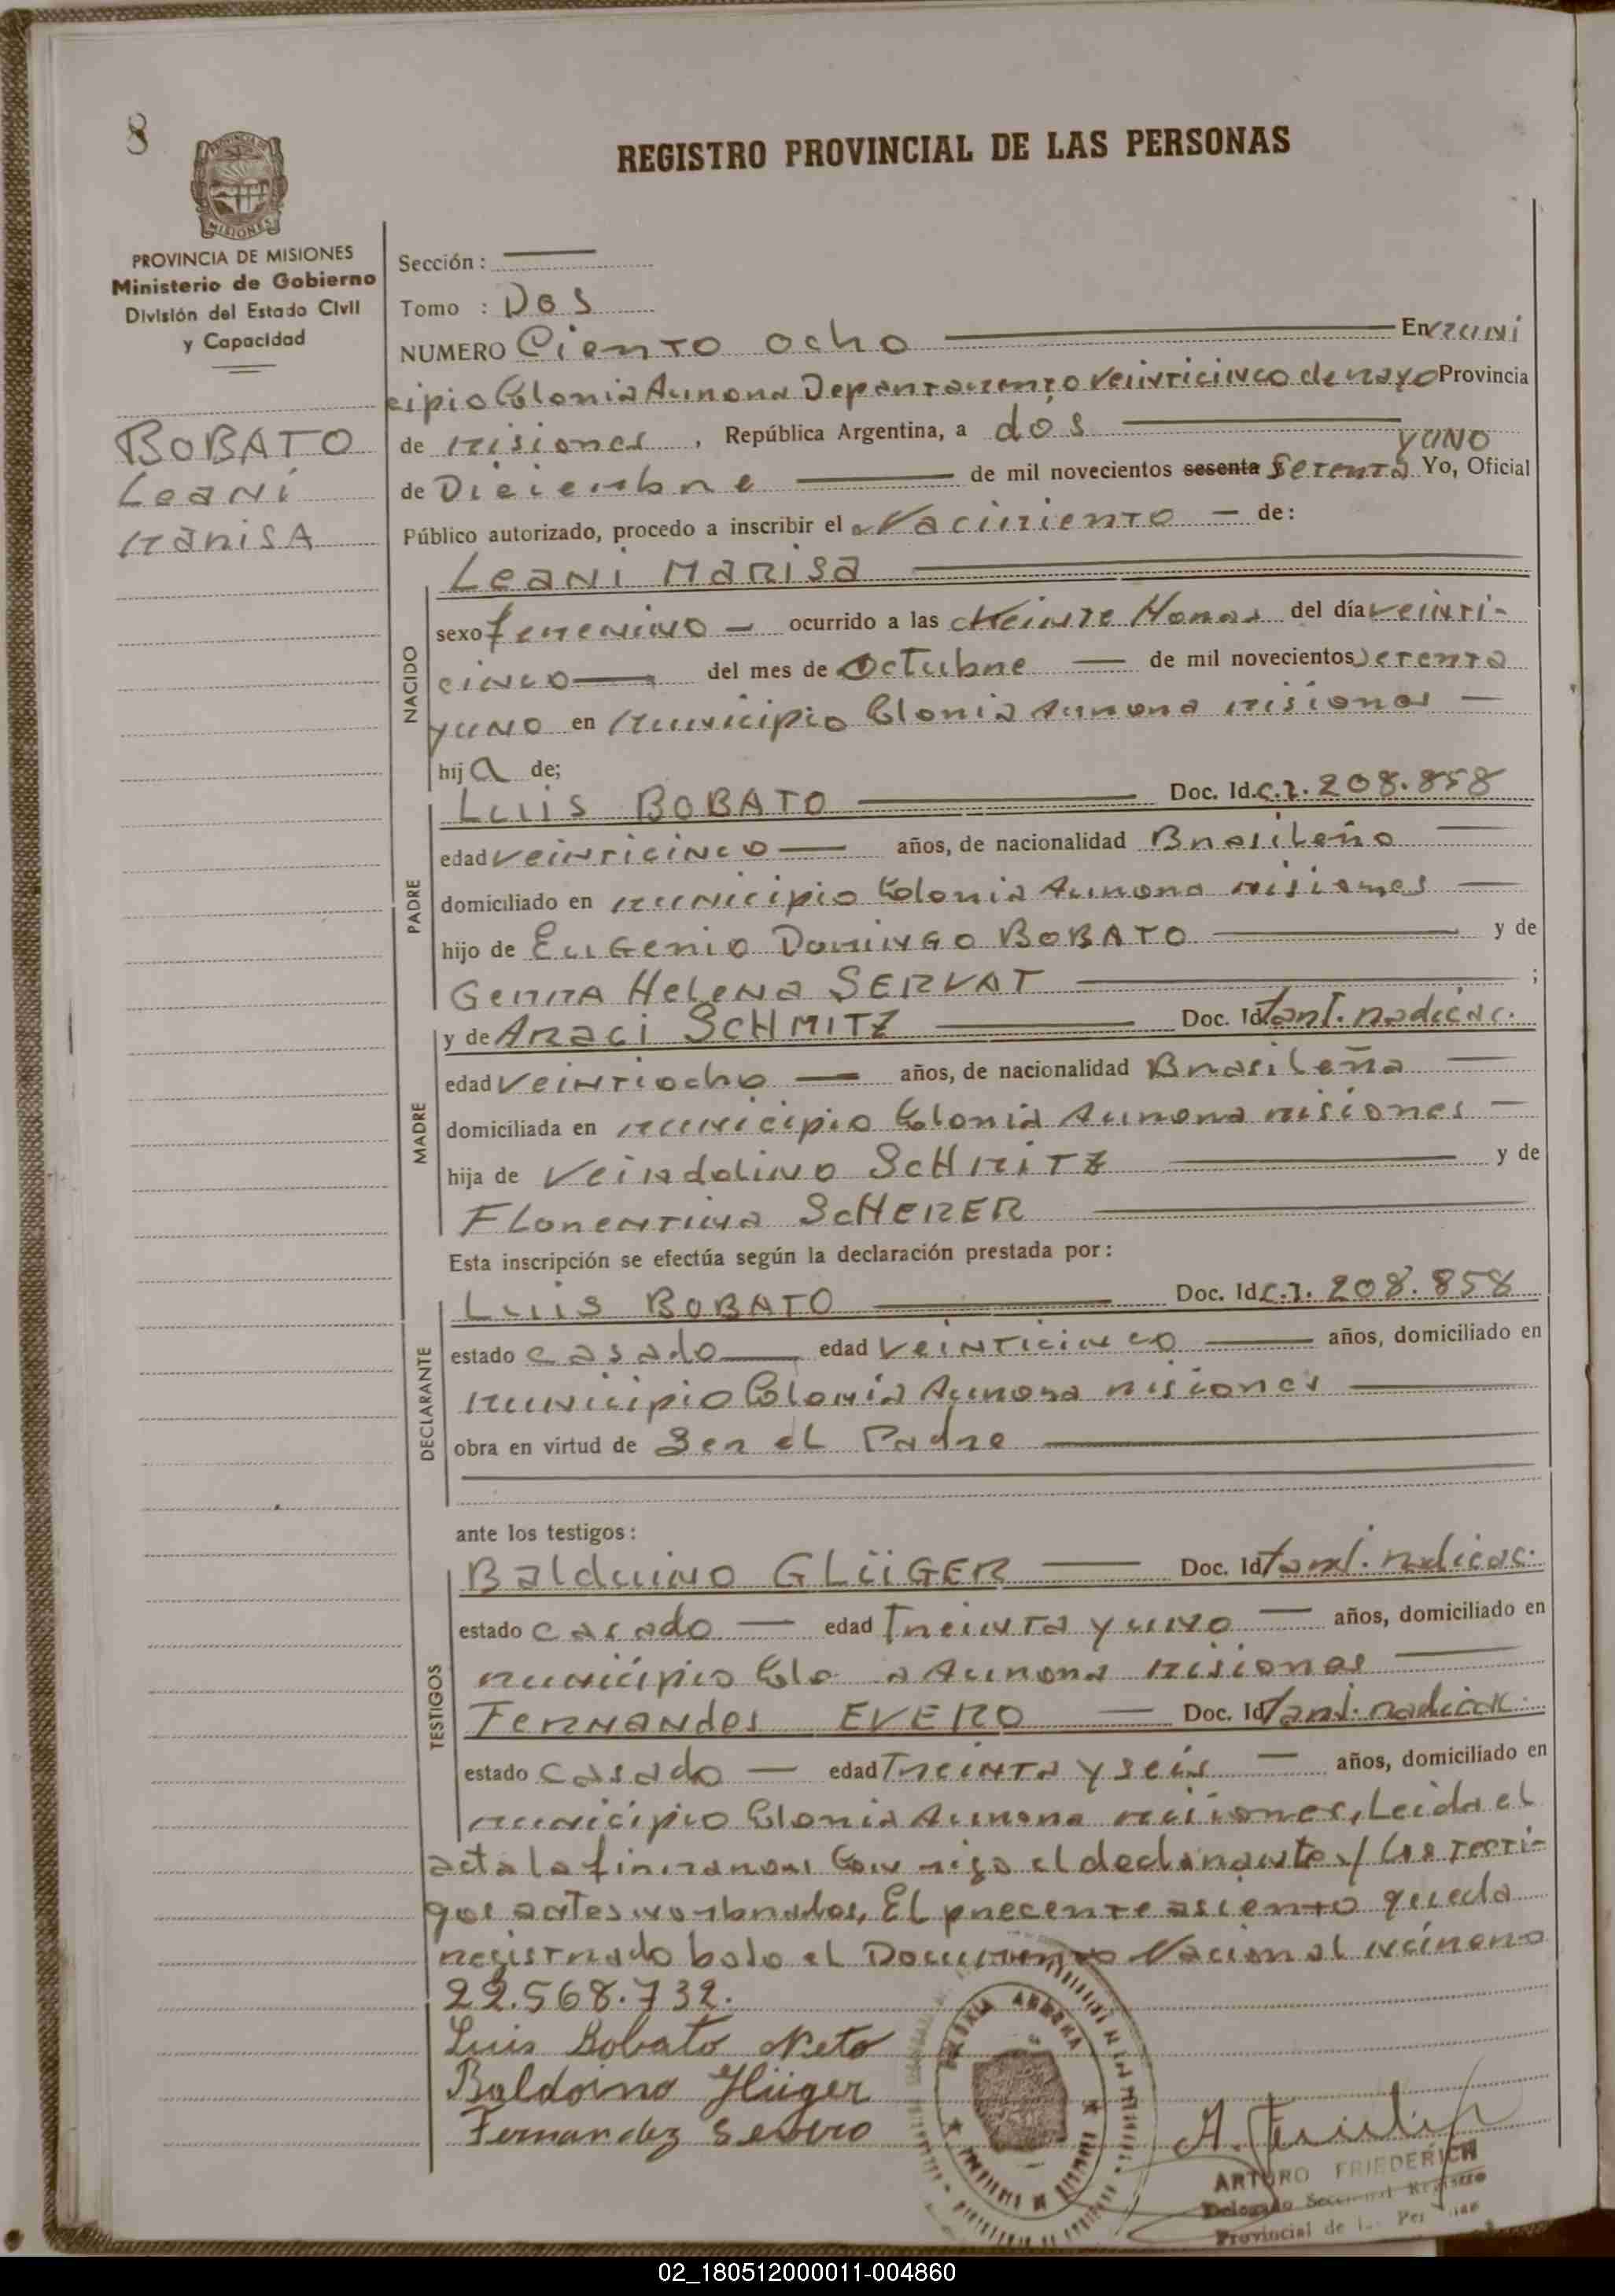 8
REGISTRO PROVINCIAL DE LAS PERSONAS
MISIONES
PROVINCIA DE MISIONES
Ministerio de Gobierno
División del Estado Civil
y Capacidad
BOBATO
Leani
MARISA
Sección :
Tomo : DOS
NUMERO Ciento ocho En Muni
cipio Colonia Aurora Departamento Veinticinco de mayo Provincia
de Misiones , República Argentina, a dos
de Diciembre de mil novecientos sesenta Setenta YUNO Yo, Oficial
Público autorizado, procedo a inscribir el Nacimiento de:
NACIDO
Leani MARISA
sexo femenino ocurrido a las Veinte Horas del día veinti-
cinco del mes de Octubre de mil novecientos setenta
yuno en Municipio Colonia Aurora Misiones
hija de;
PADRE
Luis BOBATO Doc. Id. C.I. 208.858
edad veinticinco años, de nacionalidad Brasileño
domiciliado en Municipio Colonia Aurora Misiones
hijo de EUGenio Domingo BOBATO y de
Gemma Helena SERVAT ;
MADRE
y de Araci SCHMITZ Doc. Id tant. radicac.
edad Veintiocho años, de nacionalidad Brasileña
domiciliada en Municipio Colonia Aurora Misiones
hija de Veindolino SCHMITZ y de
Florentina SCHERER
Esta inscripción se efectúa según la declaración prestada por:
DECLARANTE
Luis BOBATO Doc. Id C.I. 208.858
estado casado edad veinticinco años, domiciliado en
Municipio Colonia Aurora Misiones
obra en virtud de Ser el Padre
ante los testigos:
TESTIGOS
Balduino GLÜGER Doc. Id tant. radicac.
estado casado edad Treinta y uno años, domiciliado en
municipio Colo a Aurora Misiones
Fernandes EVERO Doc. Id tant. radicac.
estado casado edad Treinta y seis años, domiciliado en
municipio Colonia Aurora Misiones, Leida el
acta la firmaron Con migo el declarante y los testi-
gos antes nombrados, El precente asiento queda
registrado bajo el Documento Nacional número
22.568.732.
Luis Bobato Neto
Baldoino Glüger
Fernandez Severo
COLONIA AURORA
ARTURO FRIEDERICH
Delegado Seccional Registro
Provincial de las Personas
02_180512000011-004860